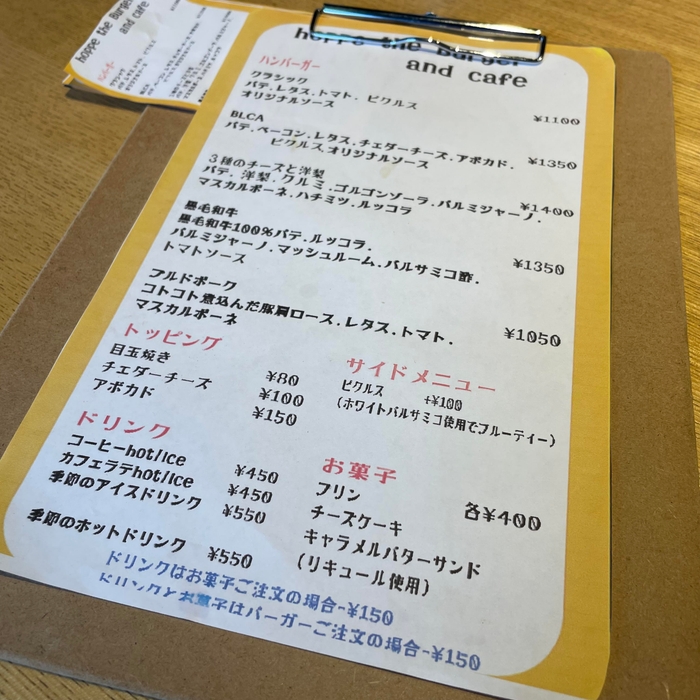 hoppe the Burger
and cafe
ハンバーガー
クラシック
パテ.レタス.トマト. ピクルス
オリジナルソース
¥1100
BLCA
パテ.ベーコン.レタス.チェダーチーズ.アボカド.
ピクルス.オリジナルソース
¥1350
3種のチーズと洋梨
パテ. 洋梨. クルミ.ゴルゴンゾーラ.パルミジャーノ.
マスカルポーネ.ハチミツ.ルッコラ
¥1400
黒毛和牛
黒毛和牛100%パテ.ルッコラ.
パルミジャーノ.マッシュルーム.バルサミコ酢.
トマトソース
¥1350
プルドポーク
コトコト煮込んだ豚肩ロース.レタス.トマト.
マスカルポーネ
¥1050
トッピング
目玉焼き ¥80
チェダーチーズ ¥100
アボカド ¥150
サイドメニュー
ピクルス +¥100
(ホワイトバルサミコ使用でフルーティー)
ドリンク
コーヒーhot/ice ¥450
カフェラテhot/ice ¥450
季節のアイスドリンク ¥550
季節のホットドリンク ¥550
お菓子
プリン
各¥400
チーズケーキ
キャラメルバターサンド
(リキュール使用)
ドリンクはお菓子ご注文の場合-¥150
ドリンクとお菓子はバーガーご注文の場合-¥150
hoppe the Burger
and cafe